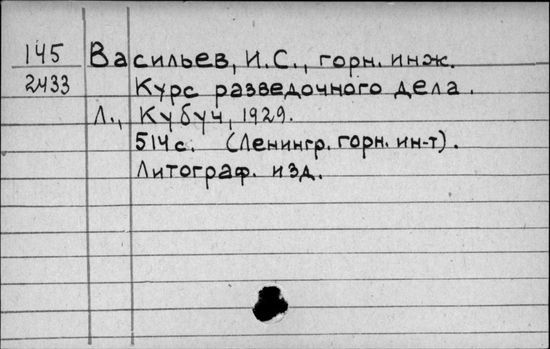 145 Васильев, И.С., горн. инж.
2433 Курс разведочного дела.
Л., Кубуч, 1929.
514с. (Ленингр. горн. ин-т).
Литограф. изд.